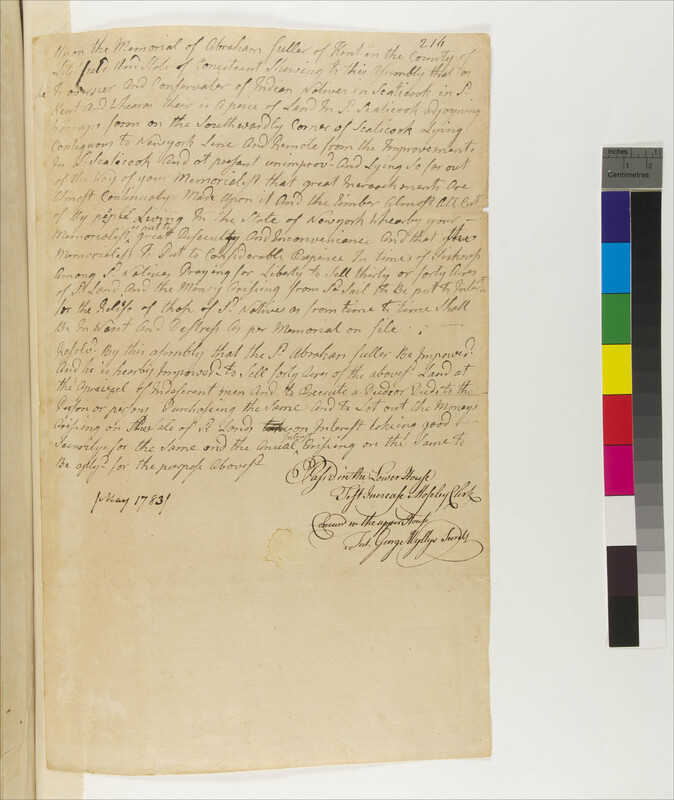 216
Upon the Memorial of Abraham fuller of Kent in the County of
Litchfield And State of Conecticut Shewing to this Assembly that
he is overseer And Conservater of Indian Natives in Scaticook in sd
Kent And Whearas thair is A peace of Land In sd Scaticook adjoyning
form on the Southwardly Corner of Scaticook Lying
Contiguous to Newyork Line And Remote from the Improvements
In sd Scaticook And at pesant unimprovd And Lying So far out
of the Way of your Memorialest that great Incroachments Are
Almost Continualy Made Upon it And the timber Almost All Cut
of By Living In the State of Newyork Whearby your
Memorialest is put to great Dificulty And Inconvenieance And that your
Memorialest Is Put to Considerable Expence In times of Sickness
Among sd Natives Praying for Liberty to Sell thirty or forty Acres
of sd Land And the Money Arising from sd Sail to Be put to Interest
for the Relief of those of sd Natives as from time to time Shall
Be In Want And Destress As per Memorial on file
Resolvd By this assembly that the sd Abraham fuller Be Impowerd
And he is hearby Impowerd to Sell forty Acres of the aboves Land at
the Apraizel of Indeferent men And to Execute a Deed or Deeds to the
Person or persons Purchasing the Same And to Let out the Moneys
Arising on the Sale of sd Lands on Interest taking good
Security for the Same and the Anual Interest Arising on the Same to
Be aplyd for the purpose Abovesd
Pass'd in the Lower House
Test Increase Moseley Clerk
[May 1783]
Concur'd in the upper House
Test. George Wyllys Secret
Inches 1 2
Centimetres